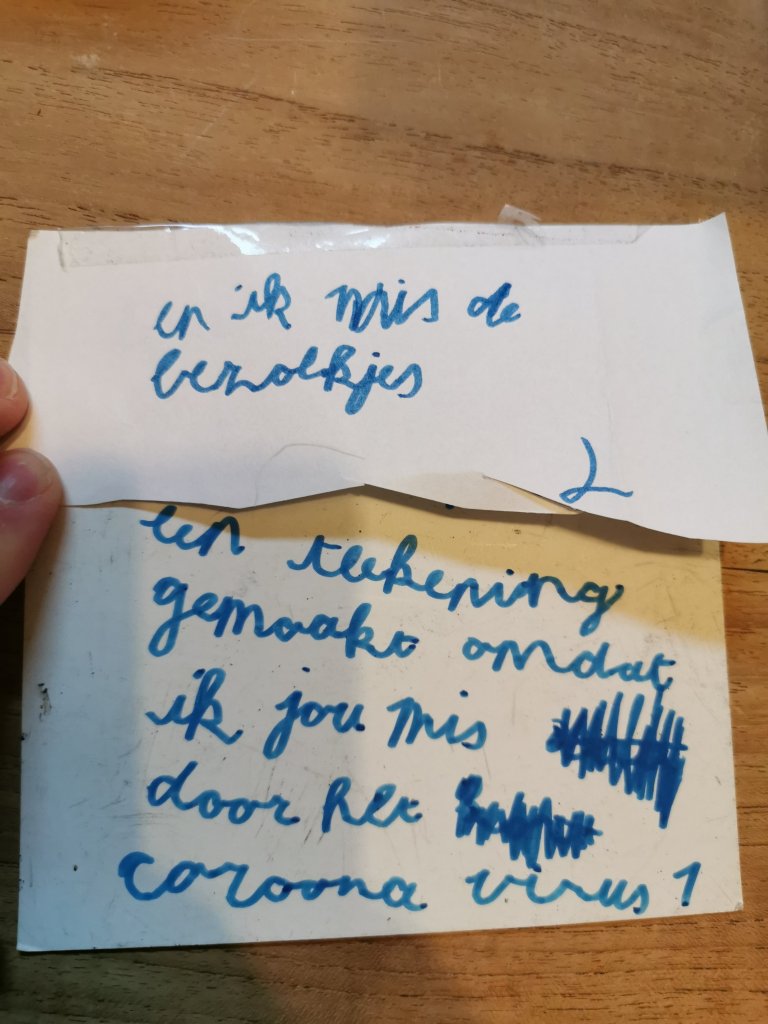 en ik mis de
bezoekjes
2
een teekening
gemaakt omdat
ik jou mis
door het
coroona virus 1